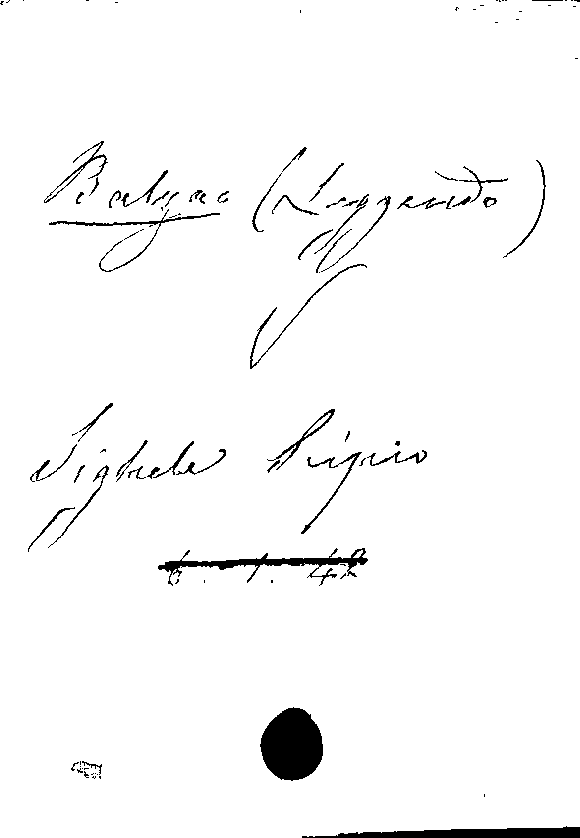 Balzac (Leggendo)
Sighele Scipio
6. 1. 42